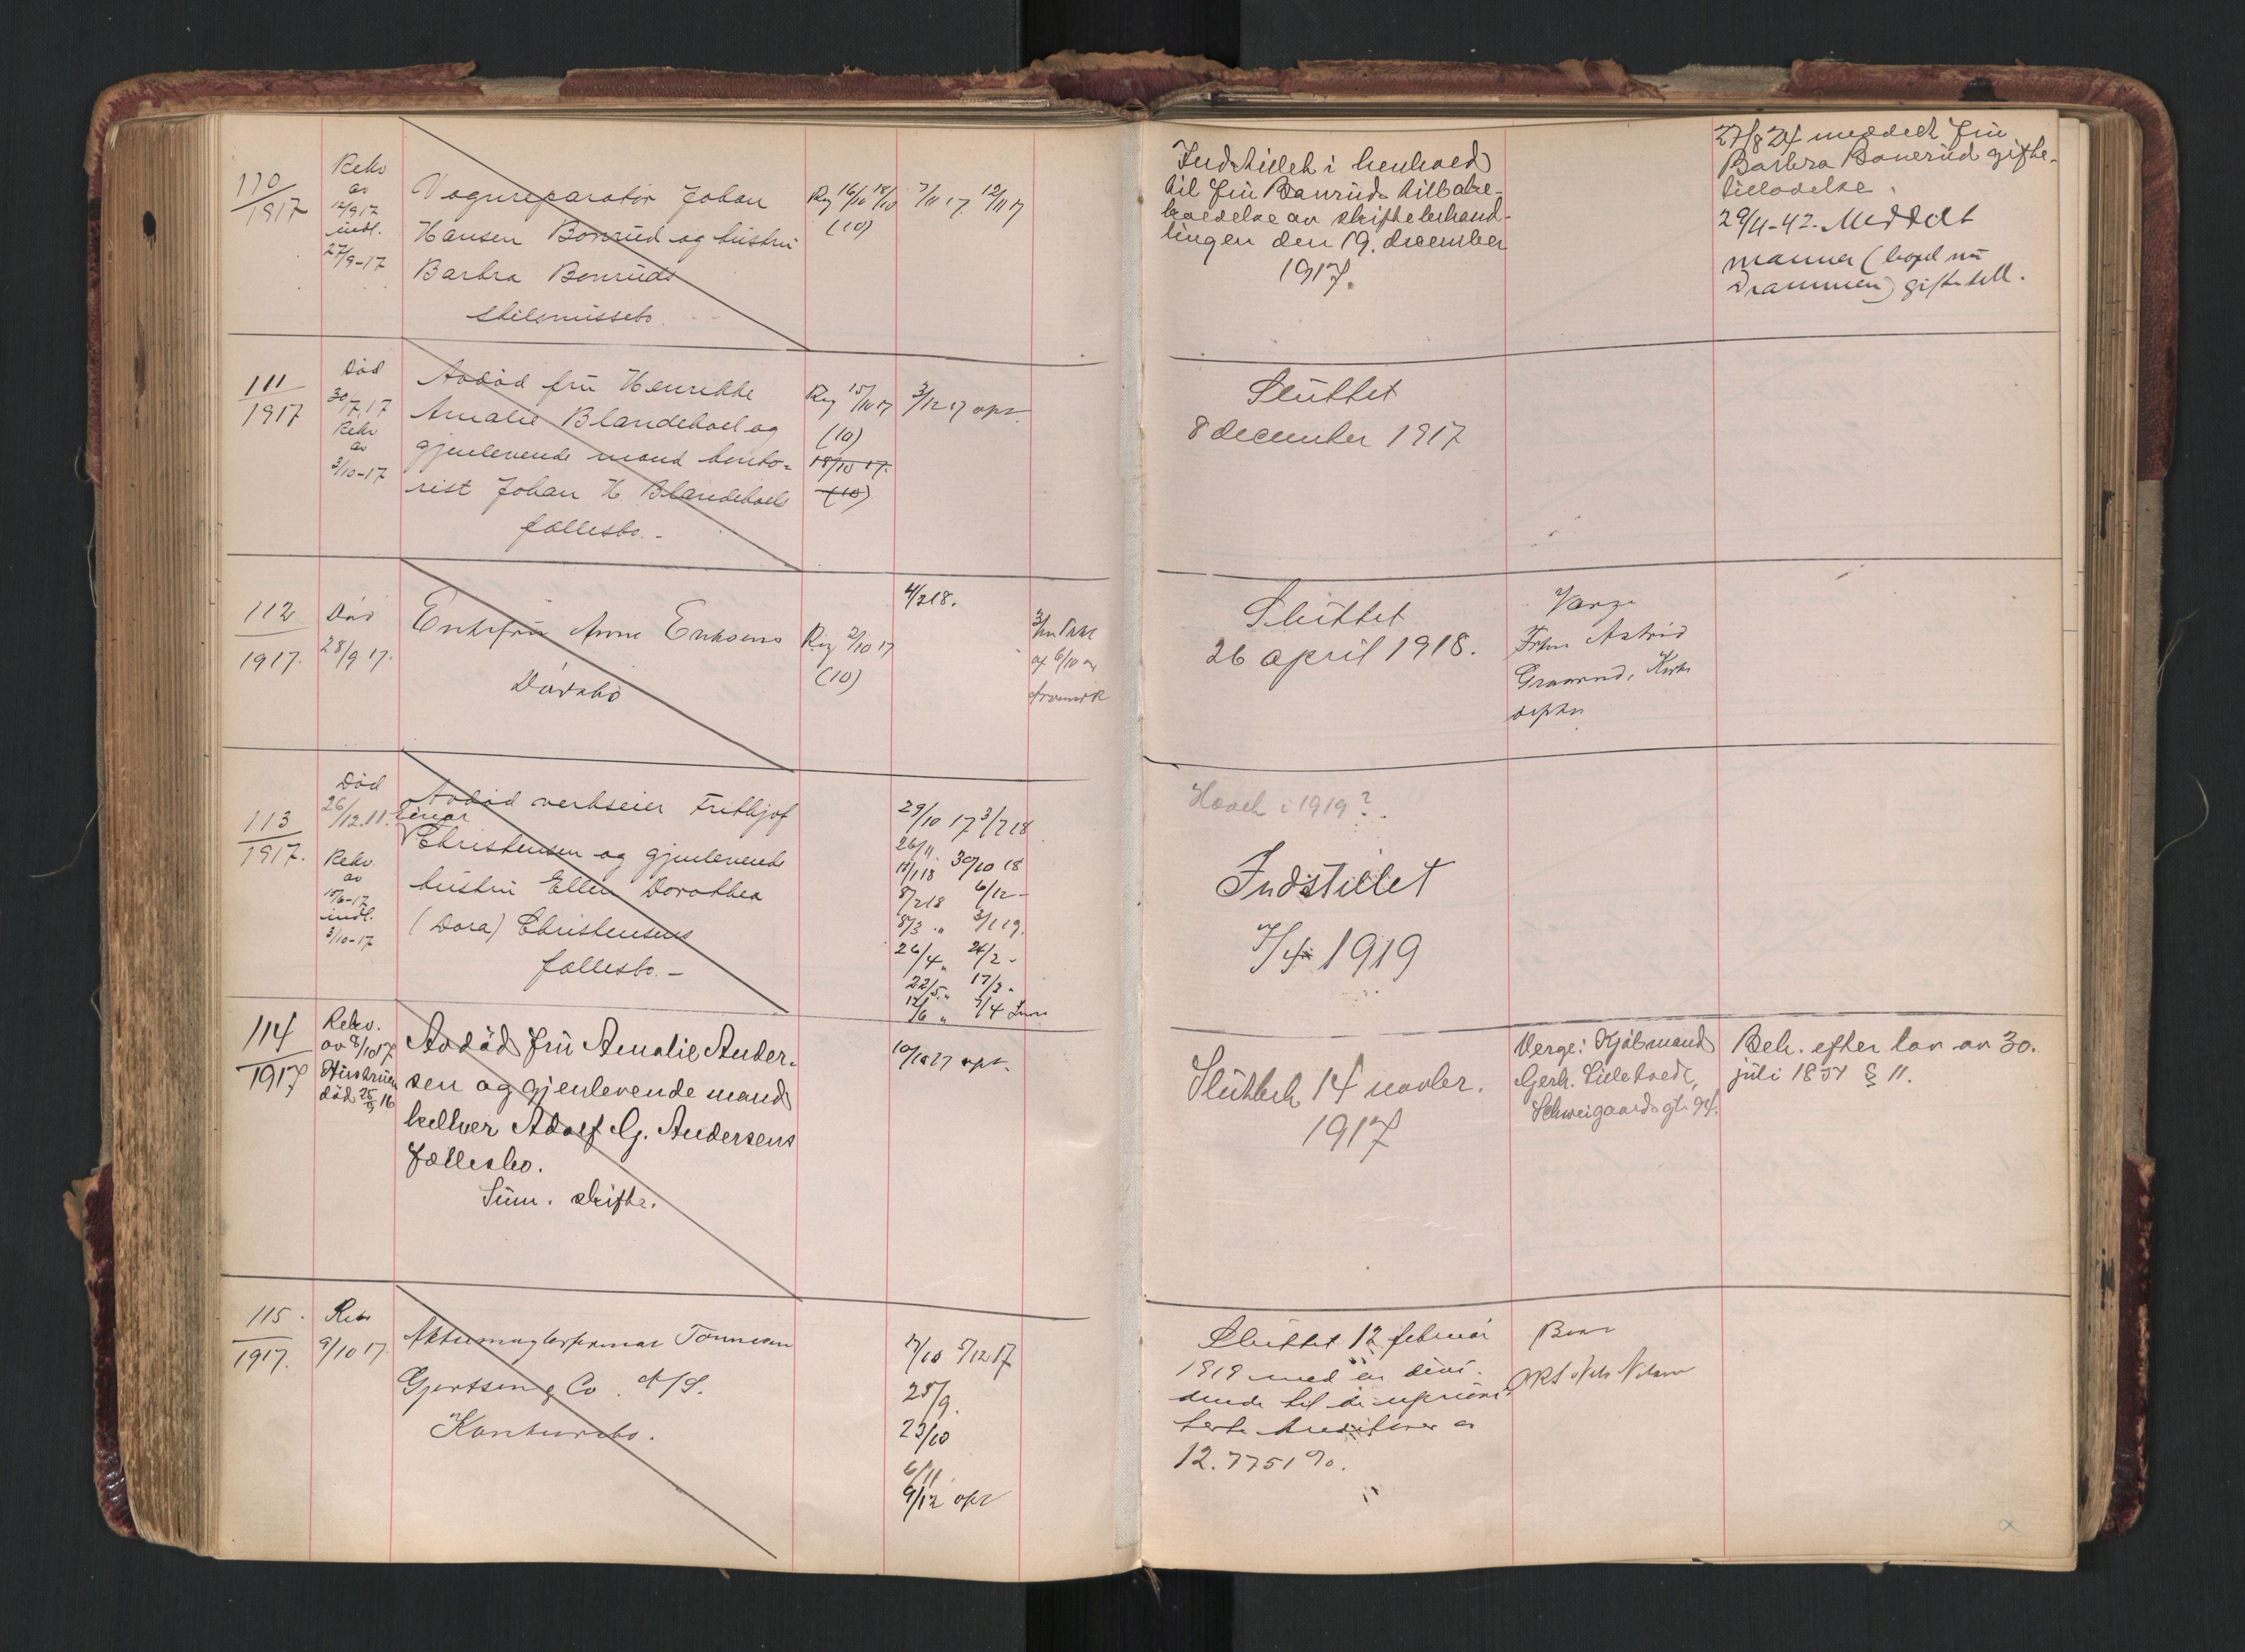 110
1917
Rekv
av
12/9 17
indl.
27/9-17
Vognreparatör Johan
Hansen Bonrud og hustru
Barbra Bonruds
skilsmissebo.
Reg 16/10 18/10
(10)
7/11 17. 12/11 17
Indstillet i henhold
til fru Bonruds tilbake-
kaldelse av skiftebehand-
lingen den 19. december
1917.
27/8 24 meddelt fru
Barbra Bonerud gifte-
tilladelse.
29/4-42. Meddelt
mannen (bopel nu
Drammen) giftetill.
111
1917
Död
30/7.17
Rekv
av
3/10-17
Avdöd fru Henrikke
Amalie Blandehoel og
gjenlevende mand konto-
rist Johan H Blandehoels
fællesbo.-
Reg 15/10 17
(10)
18/10 17.
(10)
3/12 17 opr.
Sluttet
8 december 1917
112
1917.
Död
28/9 17.
Enkefru Anne Eriksens
Dödsbo
Reg 2/10 17
(10)
4/2 18.
Sluttet
26 april 1918.
Verge
Frkn Astrid
113
1917.
Död
26/12.11.
Rekv.
av
15/6-17
indl.
3/10-17
Avdöd verkseier Frithjof
Einar
Christensen og gjenlevende
hustru Ellen Dorothea
(Dora) Christensens
fællesbo.-
29/10 17 3/7 18
26/11. 30/10 18
11/1 18 6/12 -
8/2 18 3/1 19.
8/3 " 24/2 -
26/4 " 17/3 "
22/5 " 7/4
12/6 "
Hævet i 1919?
Indstillet
1919
114
1917
Rekv.
av 8/10 17
Hustruen
död 25/9 16
Avdöd fru Amalie Ander-
sen og gjenlevende mand
kelner Adolf G. Andersens
Fællesbo.
Sum. skifte.
10/10 17 opr.
Sluttet 14 novbr.
1917
Verge: Kjöbmand
Gerh. Lilletvedt,
Schweigaardsgt. 94.
Beh. efter lov av 30.
juli 1851 § 11.
115.
1917.
Rekv
9/10 17
Aktiemæglerfirmaet Tönnesen
Gjertsen & Co. A/S.
Konkursbo.
17/10 5/12 17
25/9.
23/10
6/11.
9/12 opr
Sluttet 12 februar
1919 med en divi-
dende til de uprior-
terte kreditorer av
12.7751 %.